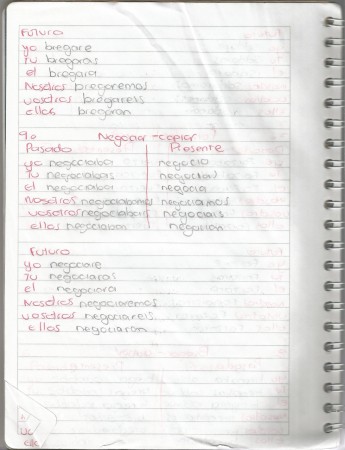 Futuro
yo bregare
Tu bregaras
el bregara
Nosotros bregaremos
vosotros bregareis
ellos bregaran
90 Negociar - copiar
Pasado Presente
yo negociaba negocio
Tu negociabas negocias
el negociaba negocia
Nosotros negociabamos negociamos
vosotros negociabais negociais
ellos negociaban negocian
Futuro
yo negociare
Tu negociaras
el negociara
Nosotros negociaremos
vosotros negociareis
ellos negociaran